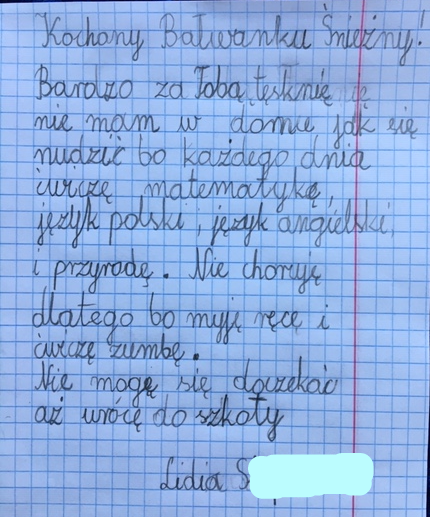 Kochany Bałwanku Śnieżny!
Bardzo za Tobą tęsknię
nie mam w domu jak się
nudzić bo każdego dnia
ćwiczę matematykę,
język polski, język angielski,
i przyrodę. Nie choruję
dlatego bo myję ręce i
ćwiczę zumbę.
Nie mogę się doczekać
aż wrócę do szkoły
Lidia